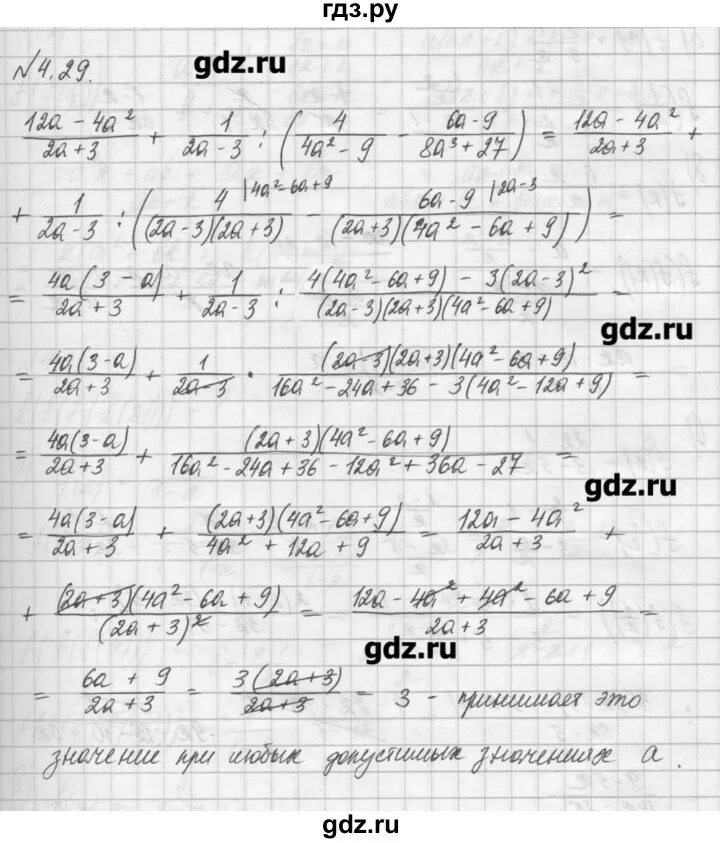 гдз.ру
№4.29.
gdz.ru
(12a - 4a²)/(2a + 3) + 1/(2a - 3) : (4/(4a² - 9) - (6a - 9)/(8a³ + 27)) = (12a - 4a²)/(2a + 3) +
+ 1/(2a - 3) : (4 |4a² - 6a + 9/((2a - 3)(2a + 3)) - (6a - 9 |2a - 3)/((2a + 3)(4a² - 6a + 9))) =
= 4a(3 - a)/(2a + 3) + 1/(2a - 3) : (4(4a² - 6a + 9) - 3(2a - 3)²)/((2a - 3)(2a + 3)(4a² - 6a + 9)) =
gdz.ru
= 4a(3 - a)/(2a + 3) + 1/(2a - 3) · (2a - 3)(2a + 3)(4a² - 6a + 9)/(16a² - 24a + 36 - 3(4a² - 12a + 9)) =
= 4a(3 - a)/(2a + 3) + (2a + 3)(4a² - 6a + 9)/(16a² - 24a + 36 - 12a² + 36a - 27) =
gdz.ru
= 4a(3 - a)/(2a + 3) + (2a + 3)(4a² - 6a + 9)/(4a² + 12a + 9) = (12a - 4a²)/(2a + 3) +
+ (2a + 3)(4a² - 6a + 9)/(2a + 3)² = (12a - 4a² + 4a² - 6a + 9)/(2a + 3) =
gdz.ru
= (6a + 9)/(2a + 3) = 3(2a + 3)/(2a + 3) = 3 - принимает это
значение при любых допустимых значениях a.
gdz.ru